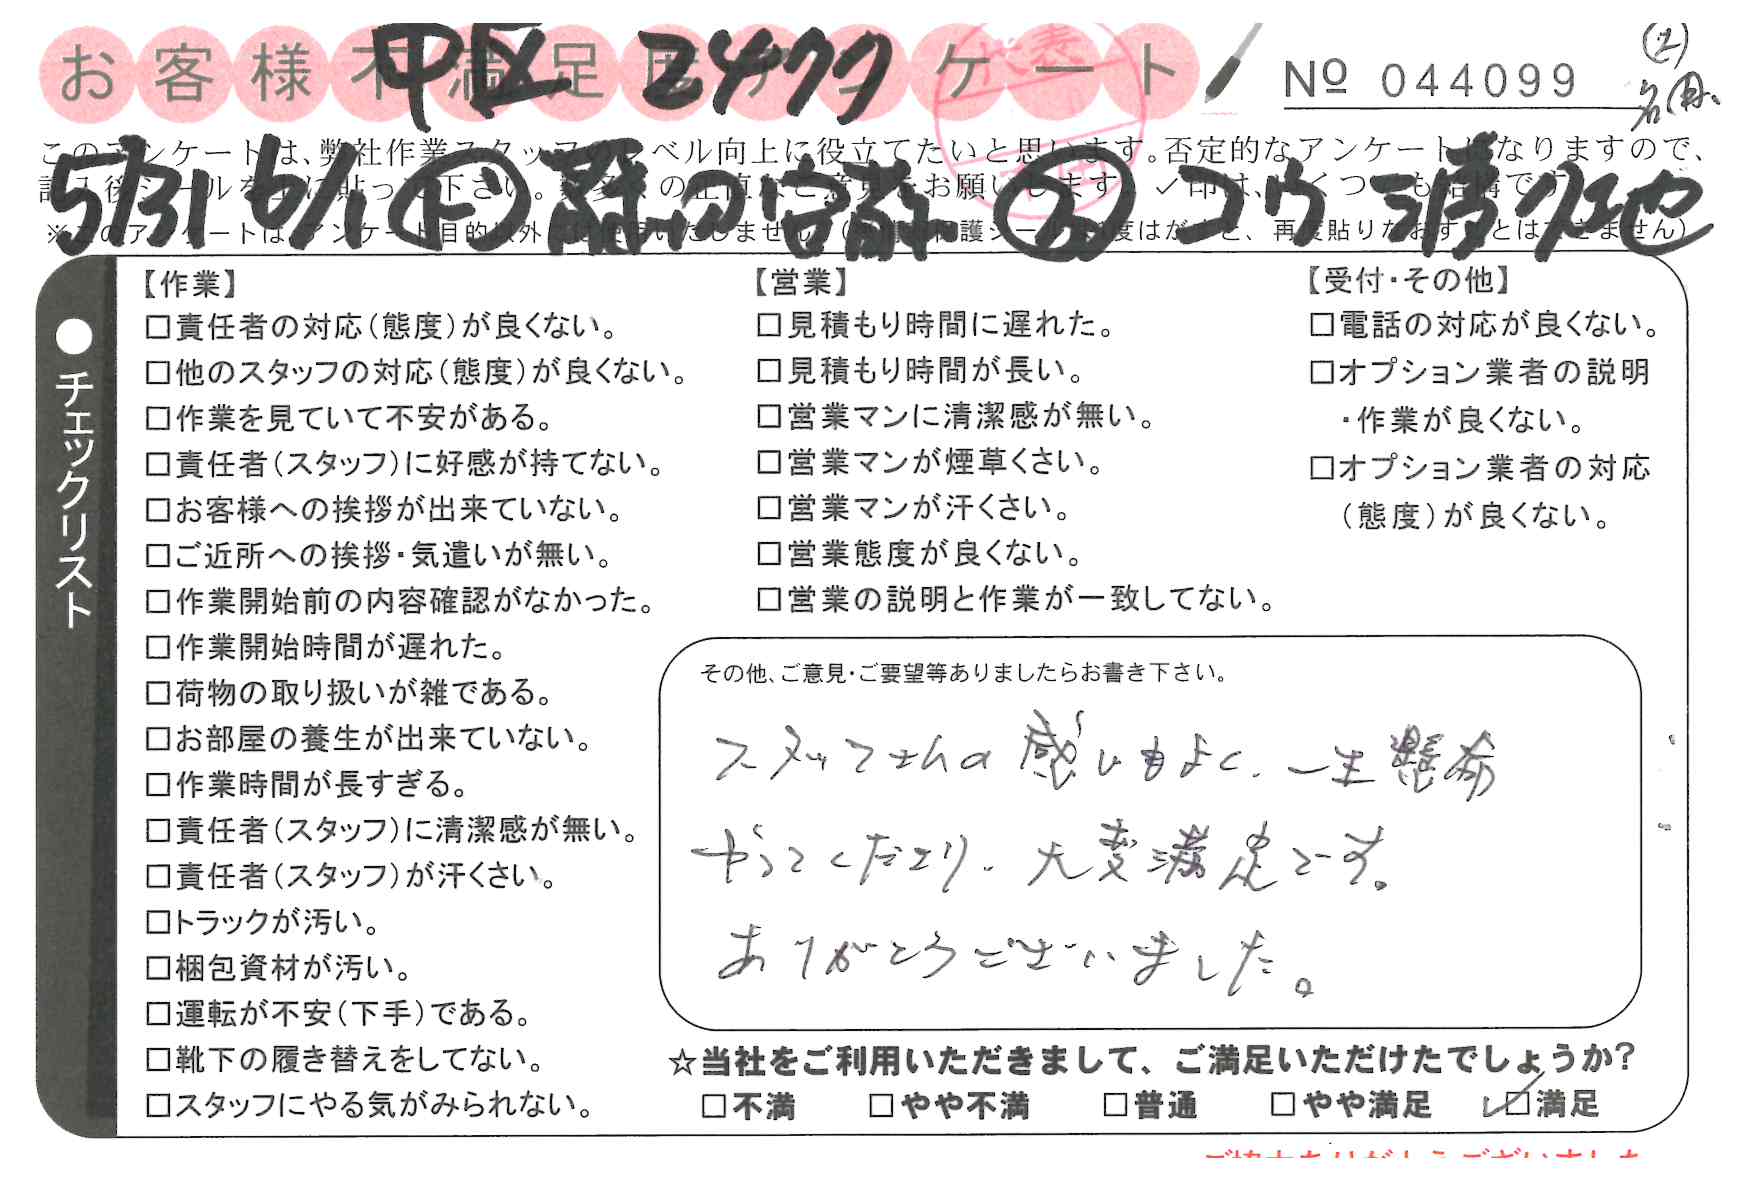 お客様不満足度アンケート
№ 044099
このアンケートは、弊社作業スタッフのレベル向上に役立てたいと思います。否定的なアンケートになりますので、
5/31 6/1
●チェックリスト
【作業】
□責任者の対応(態度)が良くない。
□他のスタッフの対応(態度)が良くない。
□作業を見ていて不安がある。
□責任者(スタッフ)に好感が持てない。
□お客様への挨拶が出来ていない。
□ご近所への挨拶・気遣いが無い。
□作業開始前の内容確認がなかった。
□作業開始時間が遅れた。
□荷物の取り扱いが雑である。
□お部屋の養生が出来ていない。
□作業時間が長すぎる。
□責任者(スタッフ)に清潔感が無い。
□責任者(スタッフ)が汗くさい。
□トラックが汚い。
□梱包資材が汚い。
□運転が不安(下手)である。
□靴下の履き替えをしてない。
□スタッフにやる気がみられない。
【営業】
□見積もり時間に遅れた。
□見積もり時間が長い。
□営業マンに清潔感が無い。
□営業マンが煙草くさい。
□営業マンが汗くさい。
□営業態度が良くない。
□営業の説明と作業が一致してない。
【受付・その他】
□電話の対応が良くない。
□オプション業者の説明
・作業が良くない。
□オプション業者の対応
(態度)が良くない。
その他、ご意見・ご要望等ありましたらお書き下さい。
スタッフさんの感じもよく、一生懸命
やってくださり、大変満足です。
ありがとうございました。
☆当社をご利用いただきまして、ご満足いただけたでしょうか?
□不満 □やや不満 □普通 □やや満足 ☑満足